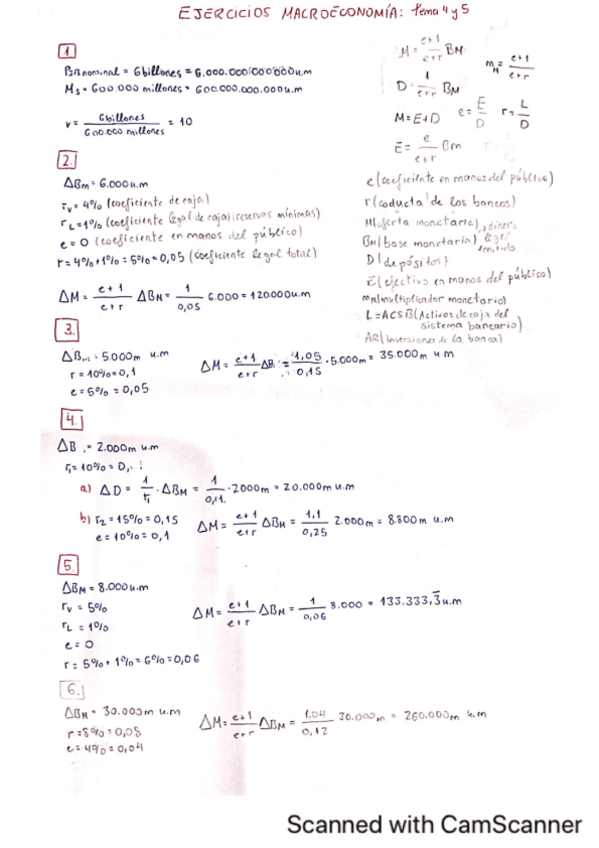 EJERCICIOS MACROECONOMÍA: Tema 4 y 5
1
PIB nominal = 6 billones = 6.000.000.000.000 u.m
Ms = 600.000 millones = 600.000.000.000 u.m
v = 6 billones / 600.000 millones = 10
M = e+1 / e+r BM
mM = e+1 / e+r
D = 1 / e+r BM
M = E+D e = E / D r = L / D
E = e / e+r BM
e (coeficiente en manos del público)
r (conducta de los bancos)
M (oferta monetaria), dinero
BM (base monetaria)
D (depósitos)
E (efectivo en manos del público)
mM (multiplicador monetario)
L = ACSB (Activos de caja del
sistema bancario)
AR (inversiones de la banca)
2.
ΔBM = 6.000 u.m
rv = 4% (coeficiente de caja)
rL = 1% (coeficiente legal de caja) (reservas mínimas)
e = 0 (coeficiente en manos del público)
r = 4% + 1% = 5% = 0,05 (coeficiente legal total)
ΔM = e+1 / e+r ΔBM = 1 / 0,05 6.000 = 120000 u.m
3.
ΔBM = 5.000m u.m
r = 10% = 0,1
e = 5% = 0,05
ΔM = e+1 / e+r ΔB = 1,05 / 0,15 · 5.000m = 35.000m u.m
4.
ΔB = 2.000m u.m
r1 = 10% = 0,
a) ΔD = 1 / r1 · ΔBM = 1 / 0,1 · 2000m = 20.000m u.m
b) r2 = 15% = 0,15
e = 10% = 0,1
ΔM = e+1 / e+r ΔBM = 1,1 / 0,25 2.000m = 8.800m u.m
5.
ΔBM = 8.000 u.m
rv = 5%
rL = 1%
e = 0
r = 5% + 1% = 6% = 0,06
ΔM = e+1 / e+r ΔBM = 1 / 0,06 8.000 = 133.333,3̅ u.m
6.
ΔBM = 30.000m u.m
r = 8% = 0,08
e = 4% = 0,04
ΔM = e+1 / e+r ΔBM = 1,04 / 0,12 30.000m = 260.000m u.m
Scanned with CamScanner